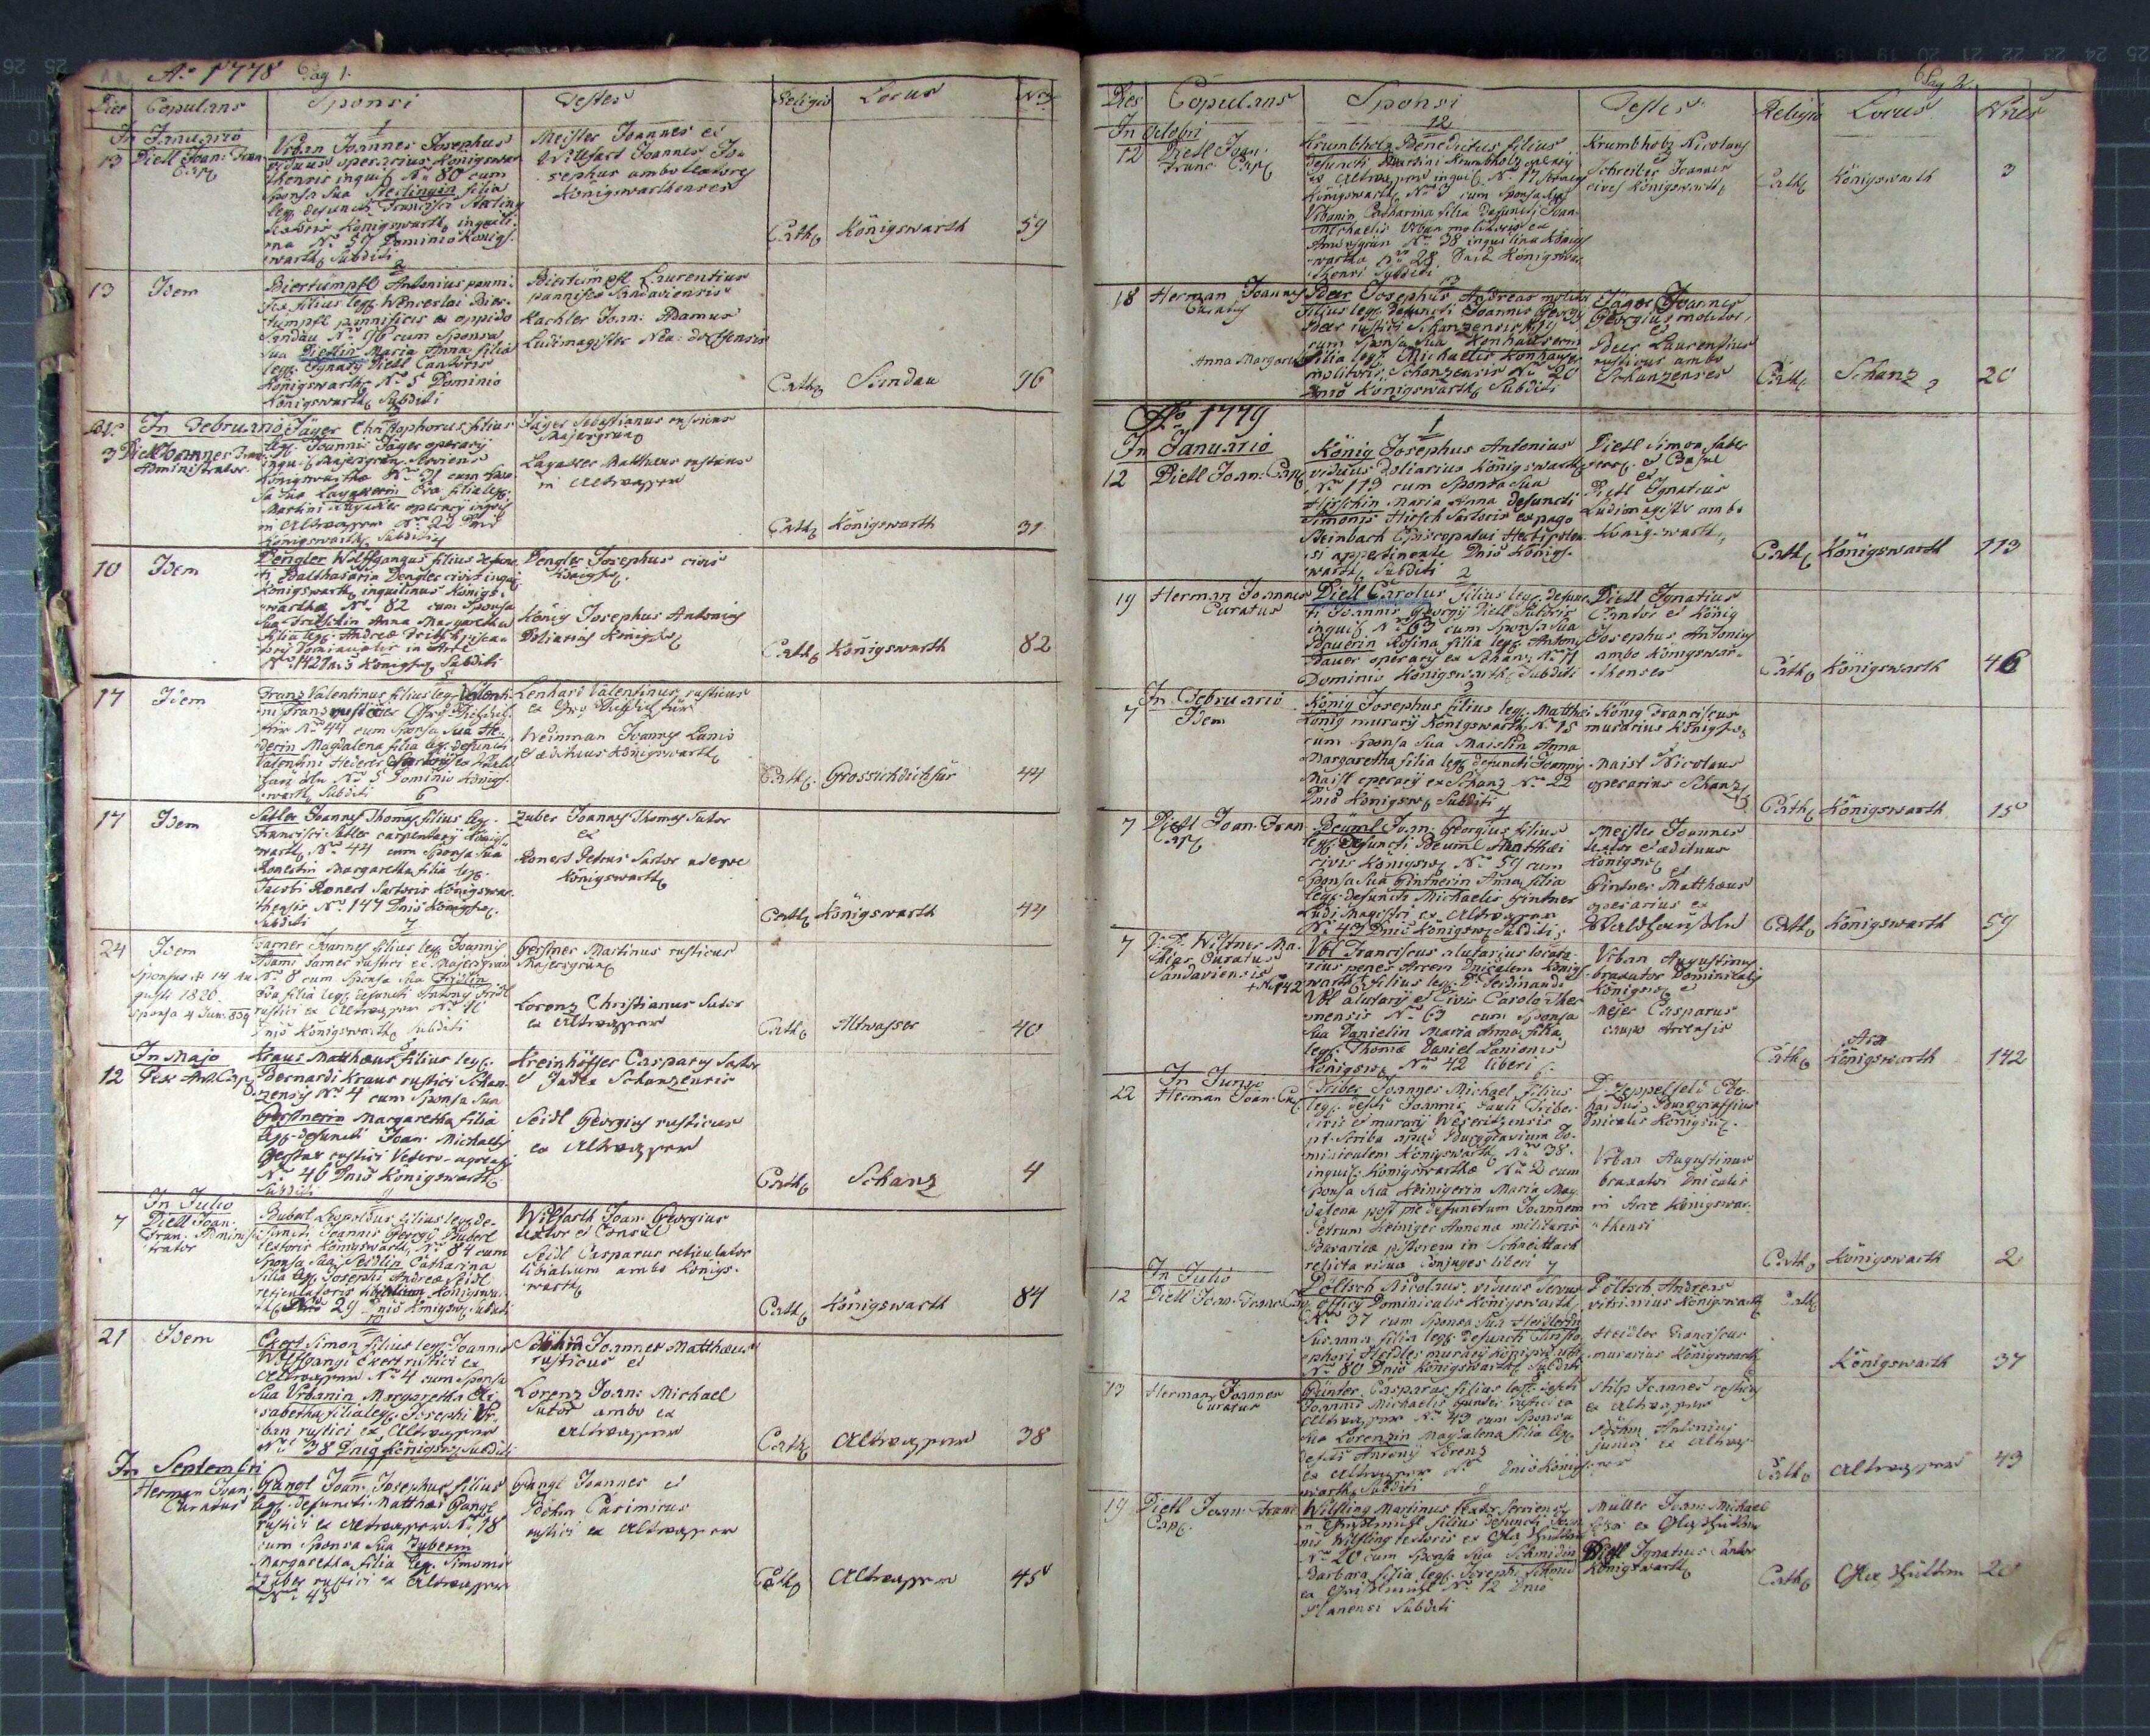 Ao 1778 Pag 1.
Dies Copulans Sponsi Testes Religio Locus Nrus
In Januario
1
13 Dietl Joan: Fran: Cap
Urban Joannes Josephus
viduus operarius Königswar
thensis inquil. No 80 cum
sponsa sua Sterlingin filia
leg. defuncti Francisci Sterling
Königswarth inquili
na No 59 Dominio Königs
warth Subditi
Meister Joannes et
Willfart Joannes Jo
sephus ambo textores
Königswarthenses
Cath Königswarth 59
2
13 Idem
Biertümpfl Antonius panni
fex filius leg. Wenceslai Bier
tumpfl pannificis ex oppido
Sandau No 96 cum Sponsa
sua Dietlin Maria Anna filia
leg. Ignatij Dietl Cantoris
Königswarth No 5 Dominio
Königswarth Subditi
Biertümpfl Laurentius
pannifex Sandaviensis
Kachler Joan: Adamus
Ludimagister
Cath Sandau 96
In Februario
3 Dietl Joannes Fran:
Administrator
Jäger Christophorus filius
leg. Joannis Jäger operarij
inquil. Majersgrün serviens
Königswarthæ No 31 cum spon
sa sua Lagaxerin Eva filia leg.
Martini Lagaxer operarij inquil.
in Altwasser No 22 Dnio
Königswarth Subditi
Jäger Sebastianus rusticus
Majersgrün
Lagaxer Matthæus rusticus
in Altwasser
Cath Königswarth 31
10 Idem
Dengler Wolffgangus filius defunc
ti Balthasaris Dengler civis inquil
Königswarth inquilinus Königs
warthæ No 82 cum Sponsa
sua Fritschin Anna Margaretha
filia leg. Andreæ Fritsch
in Arce
No 142 Dnio Königsw. Subditi
Dengler Josephus civis
Königsw.
König Josephus Antonius
Doliarius Königsw
Cath Königswarth 82
17 Idem
Franz Valentinus filius leg. Valenti
ni Franz rustici
No 44 cum Sponsa sua He
derin Magdalena filia leg. defuncti
Valentini Hederer
No 5 Dominio Königs
warth Subditi
Lenhart Valentinus rusticus
ex
Weinman Joannes Lanio
et ædituus Königswarth
Cath Grossichdichfür 44
6
17 Idem
Sattler Joannes Thomas filius leg.
Francisci Sattler carpentarij Königs
warth No 44 cum Sponsa sua
Ronertin Margaretha filia leg.
Jacobi Ronert Sartoris Königswar
thensis No 147 Dnio Königsw.
Subditi
Zuber Joannes Thomas Sutor
et
Ronert Petrus Sartor uterque
Königswarth
Cath Königswarth 44
7
24 Idem
Sponsus † 14 Au
gusti 1820.
Sponsa 4 Jun. 839
Sarner Joannes filius leg. Joannis
Adami Sarner rustici ex Majersgrün
No 8 cum Sponsa sua Fridlin
Eva filia leg. defuncti Antonij Fridl
rustici ex Altwasser No 16
Dnio Königswarth Subditi
Gerstner Martinus rusticus
Majersgrün
Lorenz Christianus Sutor
ex Altwasser
Cath Altwasser 40
In Majo
12
Kraus Matthæus filius leg.
Bernardi Kraus rustici Schan
zensis No 4 cum Sponsa sua
Gerstnerin Margaretha filia
leg. defuncti Joan: Michaelis
Gerstner rustici
No 46 Dnio Königswarth
Subditi
Kreinhöffer Casparus Sutor
et Judex Schanzensis
Seidl Georgius rusticus
ex Altwasser
Cath Schanz 4
In Julio
9
7 Dietl Joan:
Fran: Adminis
trator
Buberl Leopoldus filius leg. de
functi Joannis Georgij Buberl
textoris Königswarth No 84 cum
Sponsa sua Seidlin Catharina
filia leg. Josephi Andreæ Seidl
reticulatoris tibialium Königswar
No 29 Dnio Königsw Subditi
Wilfarth Joan: Georgius
textor et Consul
Seidl Casparus reticulator
tibialium ambo Königs
warth
Cath Königswarth 84
10
21 Idem
Ekert Simon filius leg. Joannis
Wolffgangi Ekert rustici ex
Altwasser No 4 cum Sponsa
sua Urbanin Margaretha Eli
sabetha filia leg. Josephi Ur
ban rustici ex Altwasser
No 38 Dnio Königsw Subditi
Böhm Joannes Matthæus
rusticus et
Lorenz Joan: Michael
Sutor ambo ex
Altwasser
Cath Altwasser 38
In Septembri
11
Herman Joan:
Curatus
Gangl Joan: Josephus filius
leg. defuncti Matthæi Gangl
rustici ex Altwasser No 18
cum Sponsa sua Zuberin
Margaretha filia leg. Simonis
Zuber rustici ex Altwasser
No 45
Gangl Joannes et
Böhm Casimirus
rustici ex Altwasser
Cath Altwasser 45
Pag 2
Dies Copulans Sponsi Testes Religio Locus Nrus
In Octobri
12
12 Dietl Joan:
Franc: Cap
Krumbholz Benedictus filius
defuncti Martini Krumbholz operarij
ex Altwasser inquil. No 17
Königswarth No 3 cum Sponsa sua
Urbanin Catharina filia defuncti Joan:
Michaelis Urban molitoris ex
No 38 inquilina Königs
warthæ No 28 Dnio Königswar
thensi Subditi
Krumbholz Nicolaus
et
Schreiter Joannes
cives Königswarth
Cath Königswarth 3
13
18 Herman Joannes
Curatus
Anna Margaretha
Beer Josephus Andreas molitor
filius leg. defuncti Joannis Georgij
Beer rustici Schanzensis No 19
cum Sponsa sua Konhäuserin
filia leg. Michaelis Konhauser
molitoris Schanzensis No 20
Dnio Königswarth Subditi
Jäger Joannes
Georgius molitor,
et
Beer Laurentius
rusticus ambo
Schanzenses
Cath Schanz 20
Ao 1779
In Januario
1
12 Dietl Joan: Cap
König Josephus Antonius
viduus Doliarius Königswarth
No 113 cum Sponsa sua
Hirschin Maria Anna defuncti
Simonis Hirsch Sartoris ex pago
Steinbach Episcopatus Herbipolen
si appertinente Dnio Königs
warth Subditi
Dietl Simon faber
et Consul
et
Dietl Ignatius
Ludimagistr ambo
Königswarth
Cath Königswarth 113
2
19 Herman Joannes
Curatus
Dietl Carolus filius leg. defunc
ti Joannis Georgij Dietl Sutoris
inquil. No 63 cum Sponsa sua
Bauerin Rosina filia leg. Antonij
Bauer operarij ex Schanz No 11
Dominio Königswarth Subditi
Dietl Ignatius
Cantor et König
Josephus Antonius
ambo Königswar
thenses
Cath Königswarth 46
In Februario
3
7 Idem
König Josephus filius leg. Matthæi
König murarij Königswarth No 15
cum Sponsa sua Maislin Anna
Margaretha filia leg. defuncti Joannis
Maisl operarij ex Schanz No 22
Dnio Königsw Subditi
König Franciscus
murarius Königsw
et
Maisl Nicolaus
operarius Schanz
Cath Königswarth 15
4
7 Dietl Joan: Fran:
Cap
Beuml Joan: Georgius filius
leg. Defuncti Beuml Matthæi
civis Königsw No 59 cum
Sponsa sua Gintnerin Anna filia
leg. defuncti Michaelis Gintner
Ludi Magistri ex Altwasser
No 49 Dnio Königsw Subditi
Meister Joannes
textor et ædituus
Königsw
et
Gintner Matthæus
operarius ex
Cath Königswarth 59
7 Wiltner Ma
thias Curatus
Sandaviensis
No 142
Ubl Franciscus alutarius locata
rius penes Arcem Dnicalem Königs
warth filius leg. D. Ferdinandi
Ubl alutarij et Civis Carolo Ther
mensis No 63 cum Sponsa
sua Danielin Maria Anna filia
leg. Thomæ Daniel Lanionis
Königsw No 42 liberi
Urban Augustinus
braxator Dominicalis
Königsw et
Mejer Casparus
caupo Arcensis
Arx
Cath Königswarth 142
In Junio
22 Herman Joan: Cu.
Triber Joannes Michael filius
leg. defti Joannis Pauli Triber
civis et murarij Weseritzensis
pt. Scriba apud Burggravium Do
minicalem Königswarth No 38
inquil. Königswarthæ No 2 cum
Sponsa sua Heinigerin Maria Mag
dalena post pie defunctum Joannem
Petrum Heiniger Annona militaris
Bavaricæ pistorem in Schneittach
relicta vidua Conjuges liberi
D. Zeppelfeld
Burggraffius
Dnicalis Königsw.
Urban Augustinus
braxator Dnicalis
in Arce Königswar
thensi
Cath Königswarth 2
In Julio
7
12 Dietl Joan: Franc: Cap
Döltsch Nicolaus, viduus servus
officij Dominicalis Königswarth
No 37 cum Sponsa sua Heidlerin
Susanna filia leg. defuncti Christo
phori Heidler murarij Königswarth
No 80 Dnio Königswarth Subditi
Döltsch Andreas
vitriarius Königswarth
Heidler Franciscus
murarius Königswarth
Cath
Königswarth 37
13 Herman Joannes
Curatus
Günter Casparus filius leg. defti
Joannis Michaelis Gunter rustici ex
Altwasser No 43 cum Sponsa
sua Lorenzin Magdalena filia leg.
defti Antonij Lorenz
ex Altwasser No Dnio Königs
warth Subditi
Stilp Joannes rusticus
ex Altwasser
Böhm Antonius
junior ex Altwas
ser
Cath Altwasser 43
9
19 Dietl Joan: Franc:
Cap.
Wilfling Martinus textor serviens
in filius defuncti Joan
nis Wilfling textoris ex Glashütten
No 20 cum Sponsa sua Schmidin
Barbara filia leg. Josephi Schmid
ex No 12 Dnio
Planensi Subditi
Müller Joan: Michael
ex Glashütten
Dietl Ignatius Cantor
Königswarth
Cath Glashütten 20